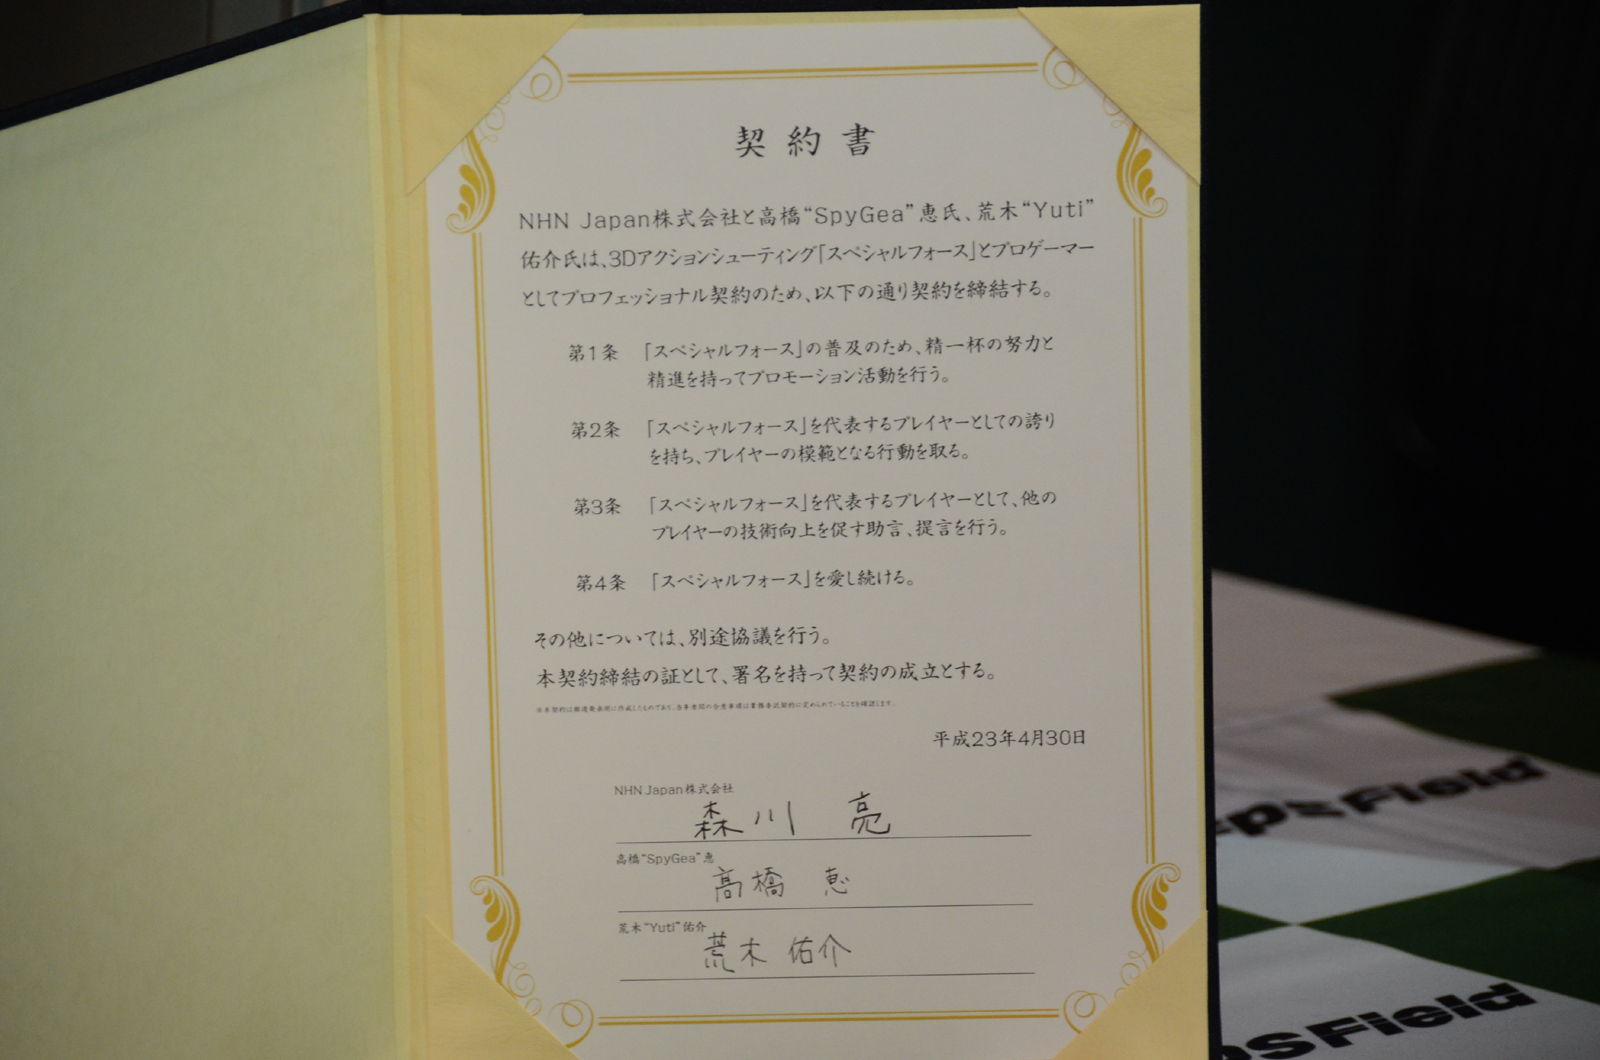 契約書
NHN Japan株式会社と高橋“SpyGea”恵氏、荒木“Yuti”
佑介氏は、3Dアクションシューティング「スペシャルフォース」とプロゲーマー
としてプロフェッショナル契約のため、以下の通り契約を締結する。
第1条 「スペシャルフォース」の普及のため、精一杯の努力と
精進を持ってプロモーション活動を行う。
第2条 「スペシャルフォース」を代表するプレイヤーとしての誇り
を持ち、プレイヤーの模範となる行動を取る。
第3条 「スペシャルフォース」を代表するプレイヤーとして、他の
プレイヤーの技術向上を促す助言、提言を行う。
第4条 「スペシャルフォース」を愛し続ける。
その他については、別途協議を行う。
本契約締結の証として、署名を持って契約の成立とする。
※本契約は報道発表用に作成したものであり、各事者間の合意事項は業務委託契約に定められていることを確認します。
平成23年4月30日
NHN Japan株式会社
森川 亮
高橋“SpyGea”恵
高橋 恵
荒木“Yuti”佑介
荒木 佑介
psField
psField